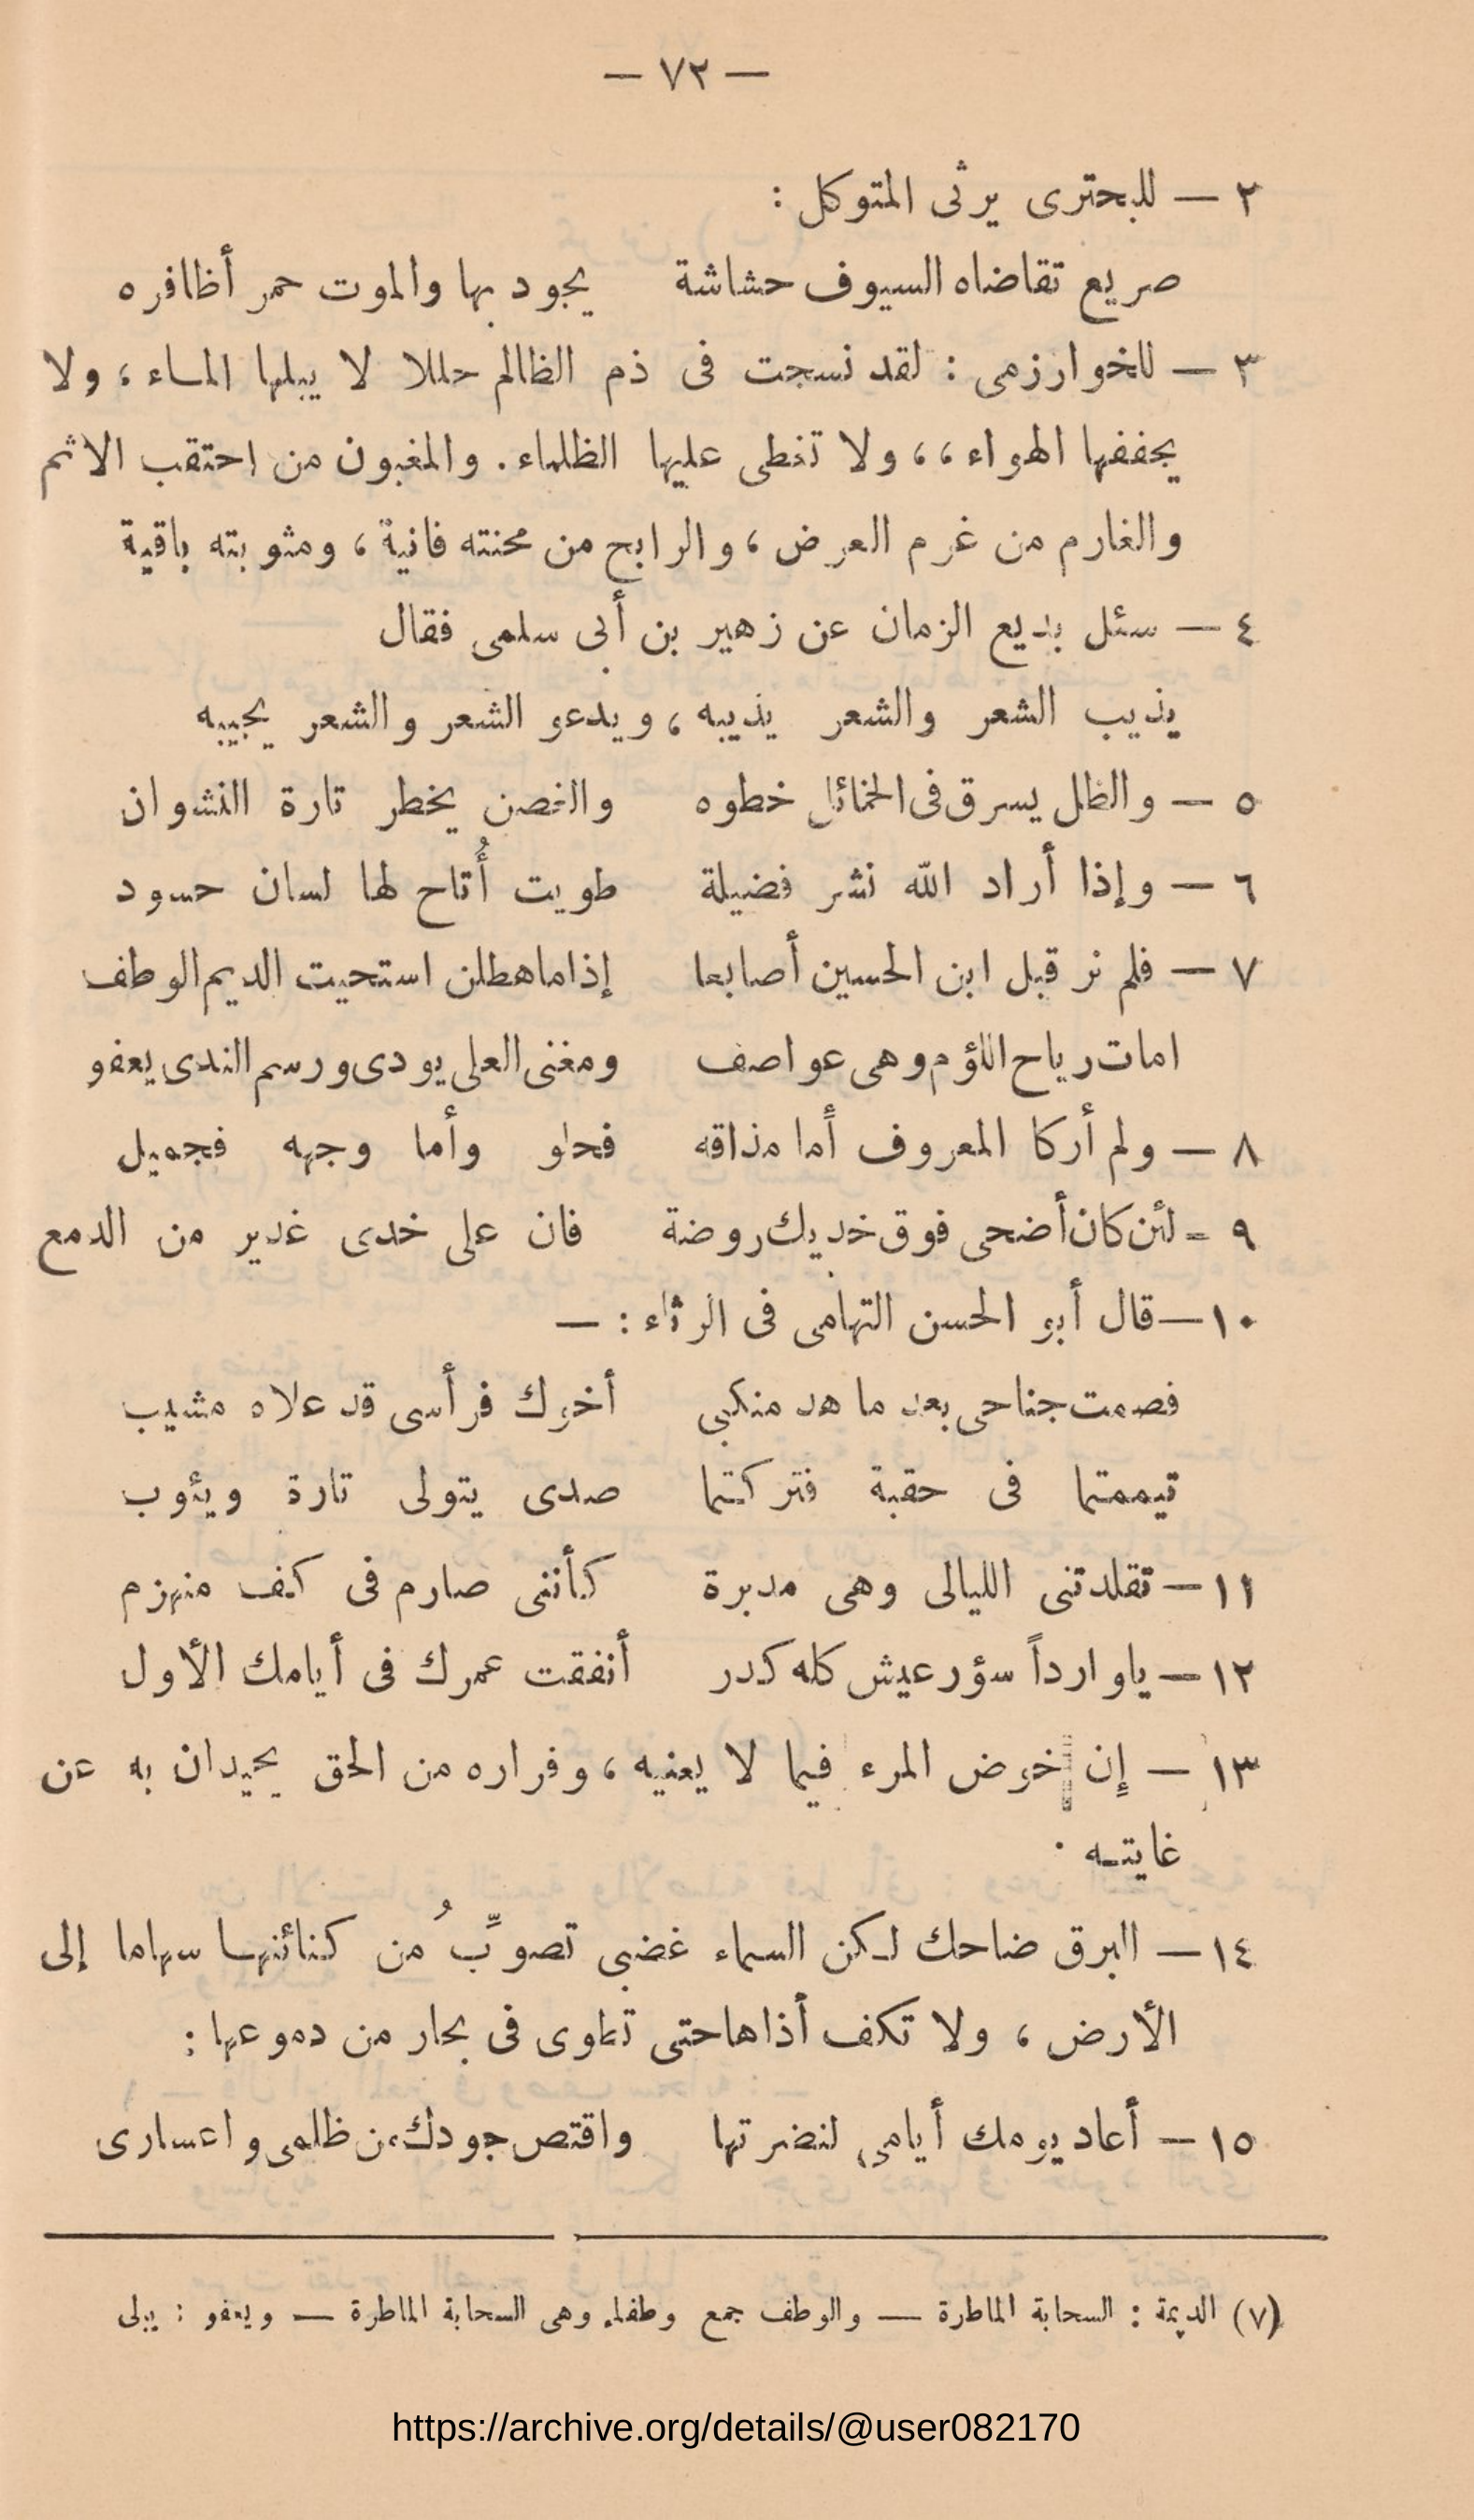 — ٧٢ —
٢ — للبحترى يرثى المتوكل :
صريع تقاضاه السيوف حشاشة يجود بها والموت حمر أظافره
٣ — للخوارزمى : لقد نسجت فى ذم الظالم حللا لا يبلها الماء ، ولا
يجففها الهواء ،، ولا تغطى عليها الظلماء . والمغبون من احتقب الاثم
والغارم من غرم العرض ، والرابح من محنته فانية ، ومثوبته باقية
٤ — سئل بديع الزمان عن زهير بن أبى سلمى فقال
يذيب الشعر والشعر يذيبه ، ويدعو الشعر والشعر يجيبه
٥ — والظل يسرق فى الخمائل خطوه والغصن يخطر تارة النشوان
٦ — وإذا أراد الله نشر فضيلة طويت أُتاح لها لسان حسود
٧ — فلم نر قبل ابن الحسين أصابعا إذا ما هطلن استحيت الديم الوطف
امات رياح اللؤم وهى عواصف ومغنى العلى يودى ورسم الندى يعفو
٨ — ولم أركا المعروف أما مذاقه فحلو وأما وجهه فجميل
٩ - لئن كان أضحى فوق خديك روضة فان على خدى غدير من الدمع
١٠ — قال أبو الحسن التهامى فى الرثاء : —
فصمت جناحى بعد ما هد منكبى أخوك فرأسى قد علاه مشيب
تيممتما فى حقبة فتركتما صدى يتولى تارة ويئوب
١١ — تقلدتنى الليالى وهى مدبرة كأننى صارم فى كف منهزم
١٢ — ياوارداً سؤر عيش كله كدر أنفقت عمرك فى أيامك الأول
١٣ — إن خوض المرء فيما لا يعنيه ، وفراره من الحق يحيدان به عن
غايته .
١٤ — البرق ضاحك لكن السماء غضبى تصوِّبُ من كنائنها سهاما إلى
الأرض ، ولا تكف أذاها حتى تهاوى فى بحار من دموعها :
١٥ — أعاد يومك أيامى لنضرتها واقتص جودك من ظلمى واعسارى
(٧) الديمة : السحابة الماطرة — والوطف جمع وطفاء وهى السحابة الماطرة — ويعفو : يبلى
https://archive.org/details/@user082170